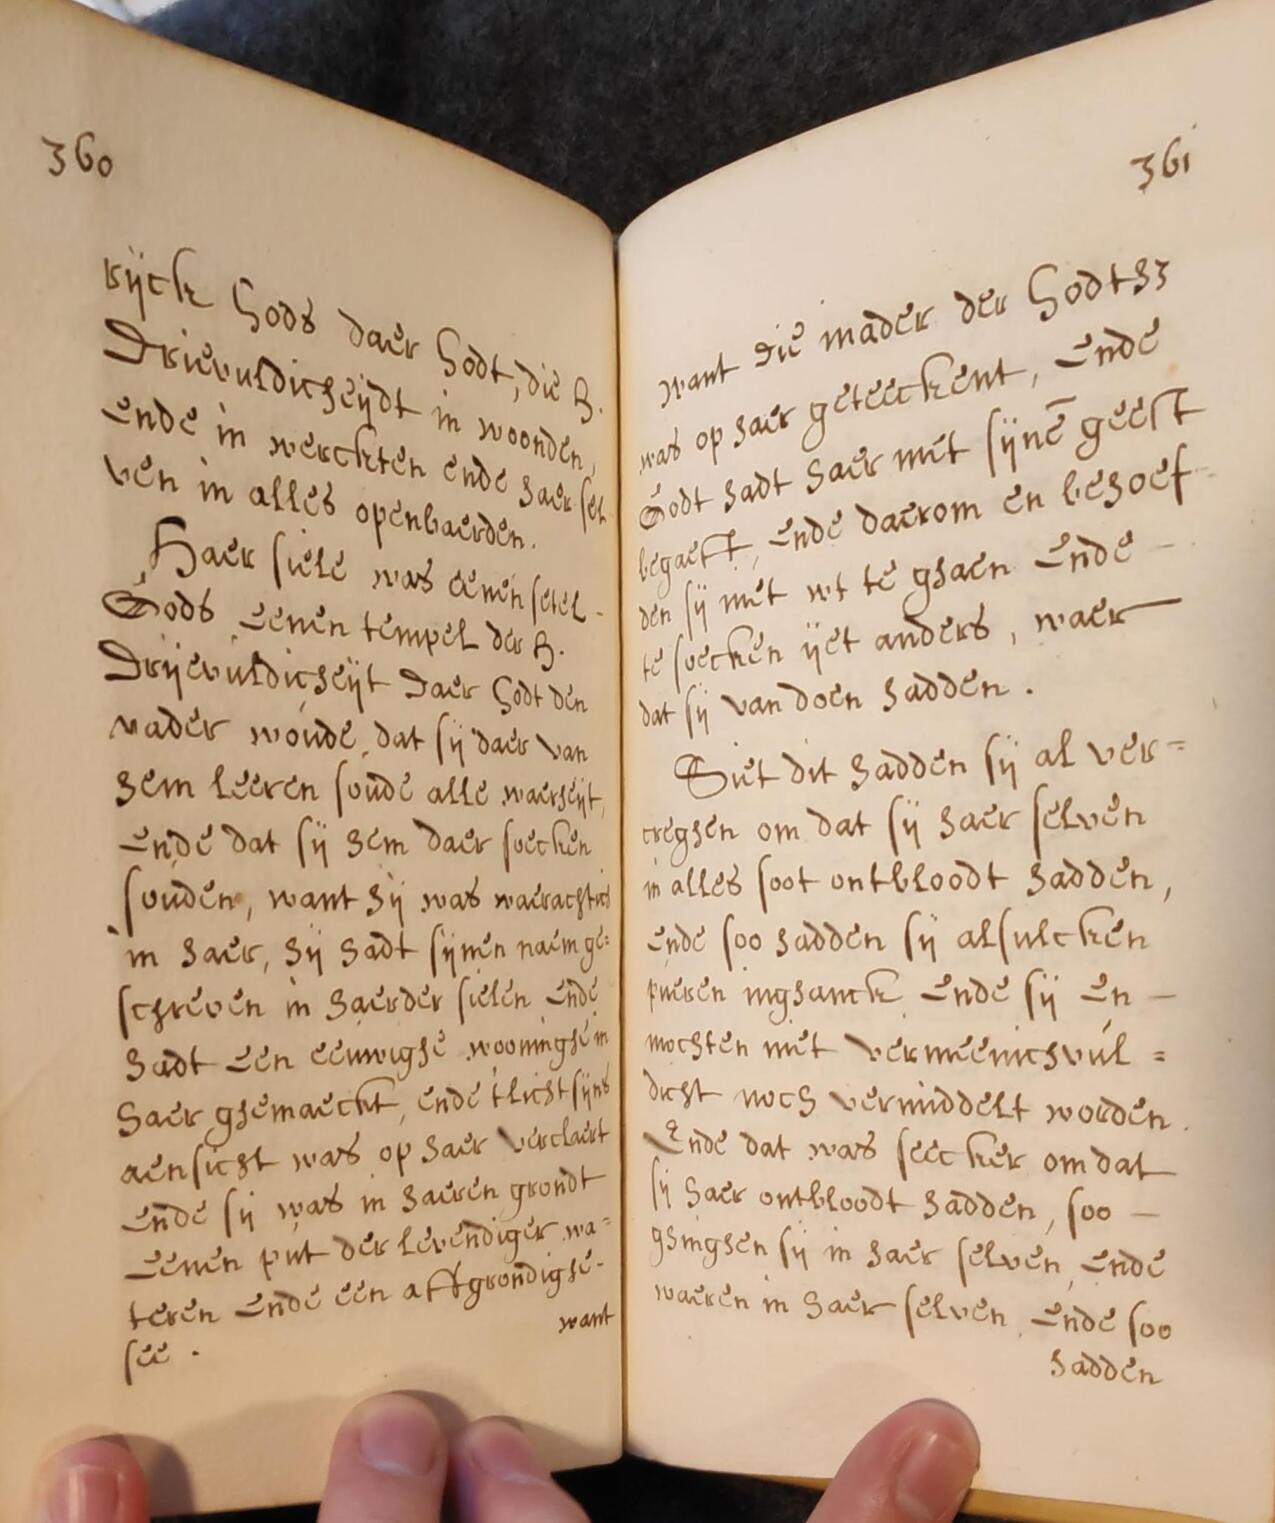 360
rijck Gods daer Godt, die H.
Drievuldicheijdt in woonden,
ende in werckten ende haer sel
ven in alles openbaerden.
Haer siele was eenen setel
Gods eenen tempel der H.
Drijevuldicheijt daer Godt den
vader woude, dat sij daer van
hem leeren soude alle waerheijt,
ende dat sij hem daer soecken
souden, want hij was waerachtich
in haer, hij hadt sijnen naem ge=
schreven in haerder sielen ende
hadt een eeuwighe wooninghe in
haer ghemaeckt, ende t'licht sijns
aensicht was op haer verclaert
ende sij was in haeren grondt
eenen put der levendiger wa=
teren ende een affgrondighe
see.
want
361
want die der Godth3
was op haer geteeckent, ende
Godt hadt haer met sijnē geest
begaeft, ende daerom en behoef
den sij niet wt te ghaen ende —
te soecken ijet anders, waer
dat sij van doen hadden.
Siet dit hadden sij al ver=
creghen om dat sij haer selven
in alles soot ontbloodt hadden,
ende soo hadden sij alsulcken
pueren inghanck ende sij en —
mochten niet vermeenichvul=
dicht noch vermiddelt worden.
Ende dat was seecker om dat
sij haer ontbloodt hadden, soo —
ghinghen sij in haer selven, ende
waeren in haer selven, ende soo
hadden